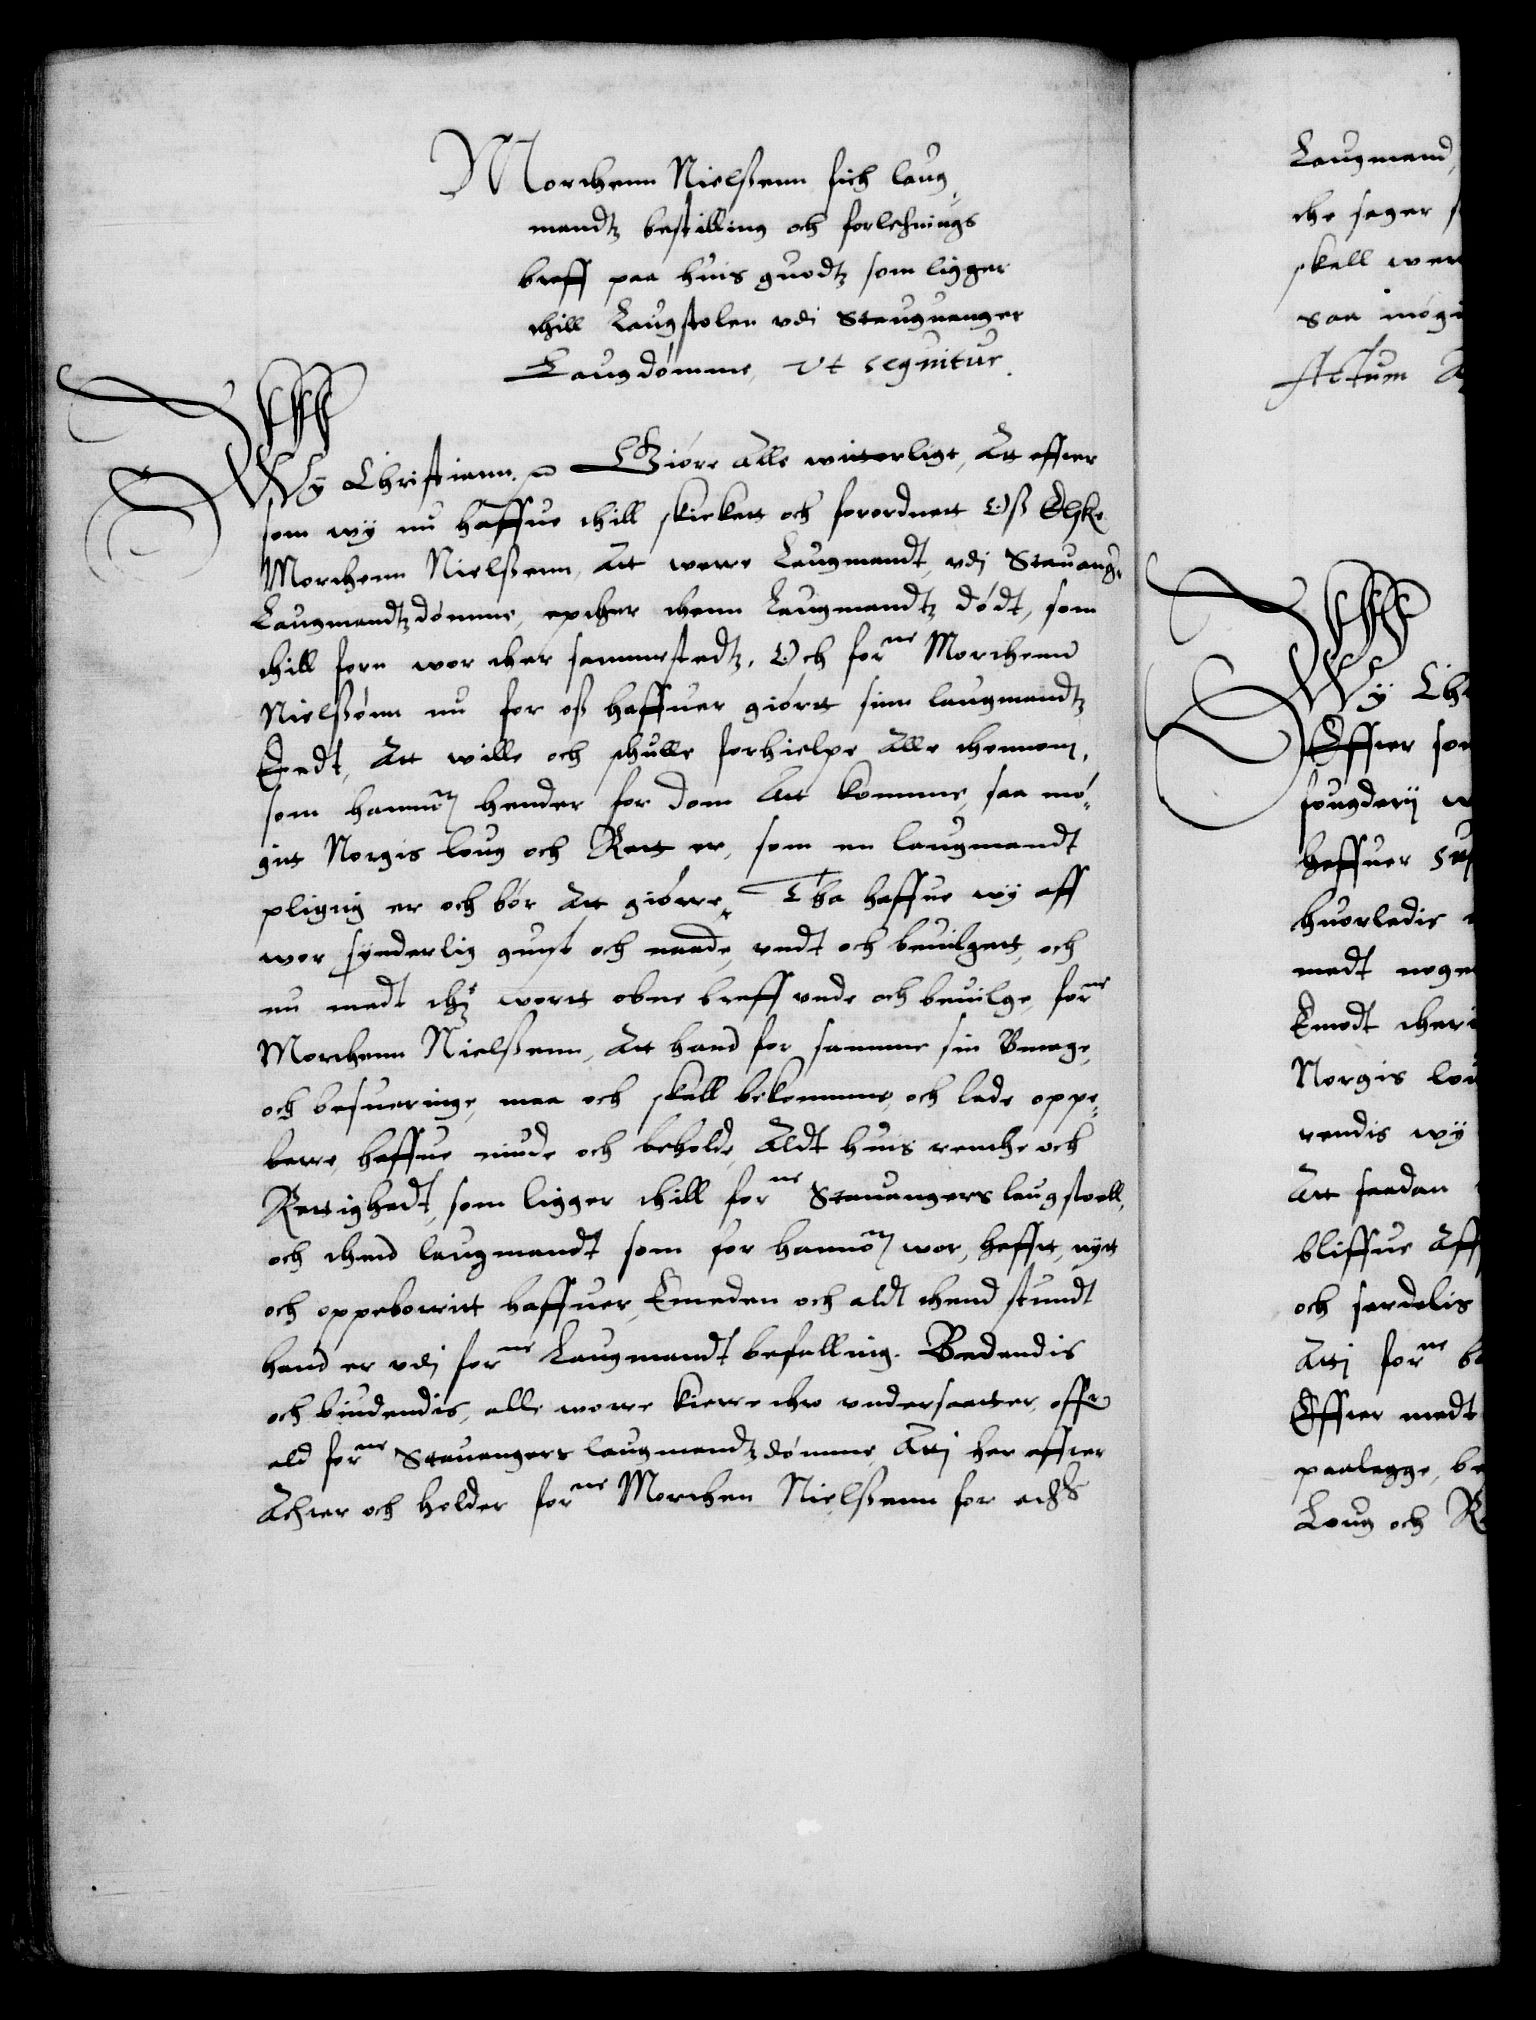 Morthenn Nielßenn fich laug-
mandtz bestilling och forlehnings
breff paa huis guodtz som ligger
thill Laugstolen vdi Staugvanger
Laugdømme, Vt sequitur.
Wy Christiann. Giøre Alle witterligt, Att effter
som wy nu haffue thill skicket och forordnett Oß Elske
Morthenn Nielßenn, Att were Laugmandt, vdj Stauang:
Laugmandtzdømme, epther thenn Laugmandtz dødt, som
thill forn wor ther sammestedtz, Och forne Morthend
Nielßønn nu for oß haffuer giørtt sinn laugmandtz
Eedt, Att wille och schulle forhielpe Alle thennom,
som hannom hender for dom Att komme, saa mø-
git Norgis loug och Rett er, som en laugmandt
pligtig er och bør Att giørre, Tha haffue wy aff
wor synderlig gunst och naade, vndt och beuilgett, och
nu medt thz wortt obne breff vnde och beuilge, forne
Morthenn Nielßenn, Att hand for samme sin Vmage,
och besueringe, maa och skall bekomme, och lade oppe-
berre, haffue niude och beholde, Aldt huis renthe och
Rettighedt, som ligger thill forne Stauangers laugstoell,
och thend laugmandt som for hannom wor, hafft, nytt
och oppeborritt haffuer, Emeden och aldt thend stundt
hand er vdj forne Laugmandt befalling. Bedendis
och biudendis, alle worre kierre thro vndersaatter, offr
ald forne Stauangers laugmandtzdømme, Attj her effter
Achter och holder forne Morthen Nielßenn for eders
Laugmand,
the sager
skall were
saa møgit
Actum
Wÿ Chr
Effter som
fougderij
haffuer
huorledis
medt noge
Emodt ther
Norgis lou
rendis wy
Att saadan
bliffue Aff
och serdelis
Attj forne be
Effter medt
paalegge, be
Loug och Re